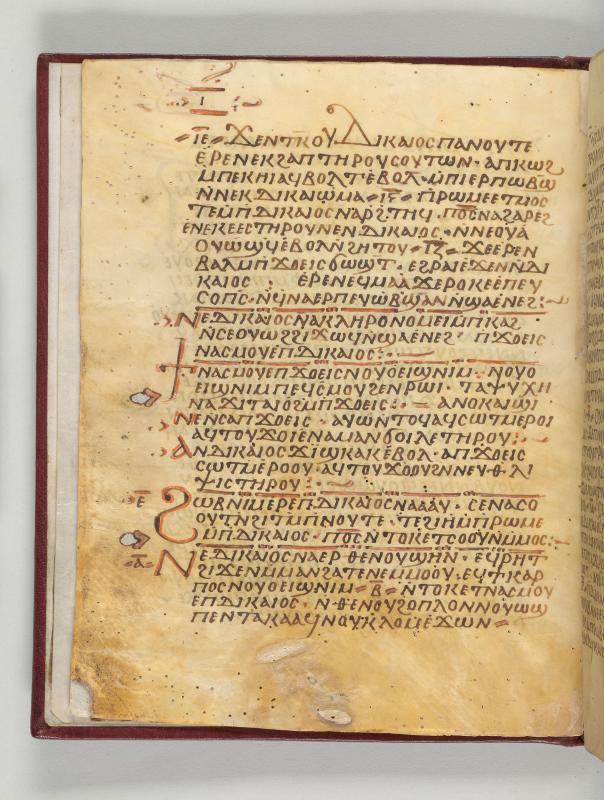 Ⲓ
ⲒⲈ ϪⲈⲚⲦⲔⲞⲨ ⲆⲒⲔⲀⲒⲞⲤ ⲠⲚⲞⲨⲦⲈ
ⲈⲢⲈⲚⲈⲔϨⲀⲠ ⲦⲎⲢⲞⲨ ⲤⲞⲨⲦⲰⲚ · ⲀⲠⲔⲰϨ
ⲘⲠⲈⲔⲎⲒ ⲀϤⲂⲞⲖⲦ ⲈⲂⲞⲖ · ⲘⲠⲒⲈⲢⲠⲰⲂϢ
ⲚⲚⲈⲔⲆⲒⲔⲀⲒⲰⲘⲀ
ⲦⲈ ⲘⲠⲆⲒⲔⲀⲒⲞⲤ ⲚⲀⲢϨⲦⲎϤ · ⲠⲞⲤ ⲚⲀϨⲀⲢⲈϨ
ⲈⲚⲈⲔⲈⲈⲤ ⲦⲎⲢⲞⲨ ⲚⲈⲚⲆⲒⲔⲀⲒⲞⲤ · ⲚⲚⲈⲞⲨⲀ
ⲞⲨⲰϢϤ ⲈⲂⲞⲖ ⲚϨⲎⲦⲞⲨ ⲒⲌ ϪⲈⲈⲢⲈⲚ
ⲂⲀⲖ ⲘⲠϪⲞⲈⲒⲤ ϬⲰϢⲦ · ⲈϨⲢⲀⲒ ⲈϪⲈⲚⲚⲆⲒ
ⲔⲀⲒⲞⲤ · ⲈⲢⲈⲚⲈϤⲘⲀⲀϪⲈ ⲢⲞⲔⲈ ⲈⲠⲈⲨ
ⲤⲞⲠⲤ · ⲚϤⲚⲀⲈⲢⲠⲈⲨⲰⲂϢ ⲀⲚ ⲚϢⲀⲈⲚⲈϨ
ⲚⲈⲆⲒⲔⲀⲒⲞⲤ ⲚⲀⲔⲖⲎⲢⲞⲚⲞⲘⲈⲒ ⲘⲠⲔⲀϨ
ⲚⲤⲈⲞⲨⲰϨ ϨⲒϪⲰϤ ⲚϢⲀⲈⲚⲈϨ ⲠϪⲞⲈⲒⲤ
ⲚⲀⲤⲘⲞⲨ ⲈⲠⲆⲒⲔⲀⲒⲞⲤ
ϮⲚⲀⲤⲘⲞⲨ ⲈⲠϪⲞⲈⲒⲤ ⲚⲞⲨⲞⲈⲒϢ ⲚⲒⲘ · ⲚⲞⲨⲞ
ⲈⲒϢ ⲚⲒⲘ ⲠⲈϤⲤⲘⲞⲨ ϨⲈⲚⲢⲰⲒ · ⲦⲀⲮⲨⲬⲎ
ⲚⲀϪⲒⲦⲀⲒⲞ ϨⲘⲠϪⲞⲈⲒⲤ ⲀⲚⲞⲔ ⲀⲒϢⲒ
ⲚⲈ ⲚⲤⲀⲠϪⲞⲈⲒⲤ · ⲀⲨⲰ ⲚⲦⲞϤ ⲀϤⲤⲰⲦⲘ ⲈⲢⲞⲒ
ⲀϤⲦⲞⲨϪⲞⲒ ⲈⲚⲀⲘⲀⲚϬⲞⲒⲖⲈ ⲦⲎⲢⲞⲨ
ⲀⲚⲆⲒⲔⲀⲒⲞⲤ ϪⲒϢⲔⲀⲔ ⲈⲂⲞⲖ · ⲀⲠϪⲞⲈⲒⲤ
ⲤⲰⲦⲘ ⲈⲢⲞⲞⲨ · ⲀϤⲦⲞⲨϪⲞⲞⲨ ϨⲚⲚⲈⲨⲐⲖⲒ
ⲮⲒⲤ ⲦⲎⲢⲞⲨ
Ⲉ ϨⲰⲂ ⲚⲒⲘ ⲈⲢⲈⲠⲆⲒⲔⲀⲒⲞⲤ ⲚⲀⲀⲀⲨ · ⲤⲈⲚⲀⲤⲞ
ⲞⲨⲦⲚ ϨⲒⲦⲘⲠⲚⲞⲨⲦⲈ · ⲦⲈϨⲒⲎ ⲘⲠⲢⲰⲘⲈ
ⲘⲠⲆⲒⲔⲀⲒⲞⲤ · ⲠⲞⲤ ⲚⲦⲞⲔ ⲈⲦⲤⲞⲞⲨⲚ ⲘⲘⲞⲤ
Ⲁ ⲚⲈⲆⲒⲔⲀⲒⲞⲤ ⲚⲀⲈⲢⲐⲈ ⲚⲞⲨϢⲎⲚ · ⲈϤⲢⲎⲦ
ϨⲒϪⲈⲚⲘⲘⲀⲚϨⲀⲦⲈ ⲚⲈⲘⲘⲞⲞⲨ · ⲈϤϮⲔⲀⲢ
ⲠⲞⲤ ⲚⲞⲨⲞⲈⲒϢ ⲚⲒⲘ Ⲃ ⲚⲦⲞⲔ ⲈⲦⲚⲀⲤⲘⲞⲨ
ⲈⲠⲆⲒⲔⲀⲒⲞⲤ · ⲚⲐⲈ ⲚⲞⲨϨⲞⲠⲖⲞⲚ ⲚⲞⲨⲰϢ
ⲠⲈⲚⲦⲀⲔⲀⲀϤ ⲚⲞⲨⲔⲖⲞⲘ ⲈϪⲰⲚ